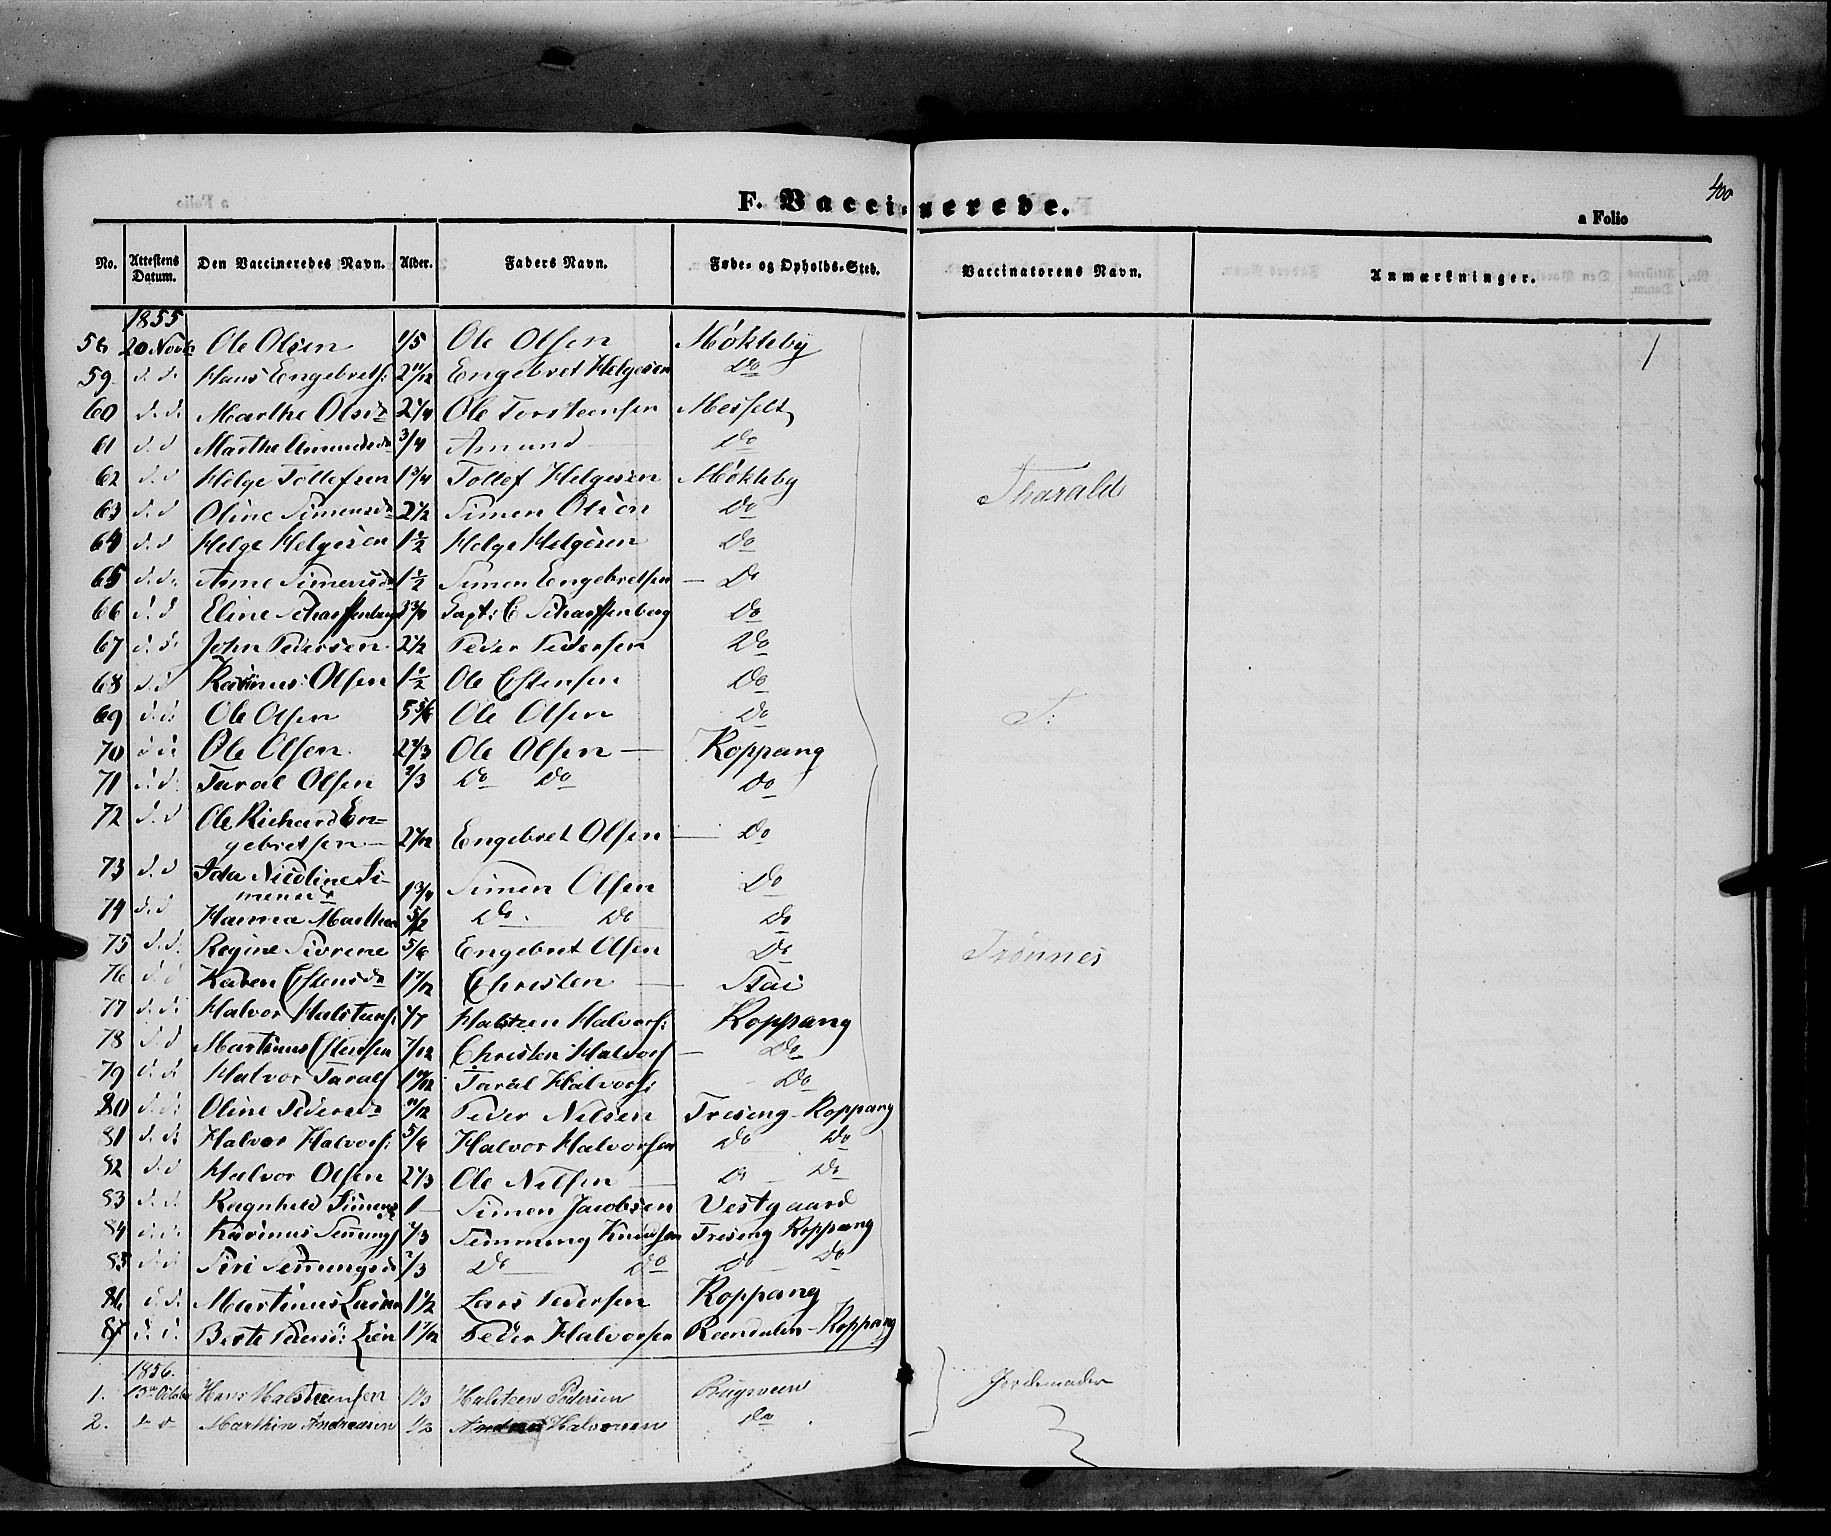 400
F. Vaccinerede.
a Folio
No. Attestens Datum. Den Vaccineredes Navn. Alder. Faders Navn. Føde- og Opholds-Sted. Vaccinatorens Navn. Anmærkninger.
1855
58 20 Novb Ole Olsen 1/5 Ole Olsen Møkleby 1
59 d. d. Hans Engebrets: 2 11/12 Engebret Helgesen Do
60 d. d. Marthe Olsd 2 1/4 Ole Torsteensen Messelt
61 d. d Marthe Amundsd 3/4 Amund Do
62 d. d Helge Tollefsen 1 3/4 Tollef Helgesen Møkleby
Tharald
63 d. d Oline Simensd 2 1/2 Simen Olsen Do
64 d. d Helge Helgesen 1 1/2 Helge Helgesen Do
65 d. d. Anne Simensd 1 1/2 Simen Engebretsen — Do
66 d. d Eline Scharffenberg Capt: C Scharffenberg Do
67 d. d. John Pedersen 2 1/2 Peder Pedersen Do
68 d. d Rasmus Olsen 1 1/2 Ole Estensen Do
69 d. d. Ole Olsen 5 5/6 Ole Olsen Do T:
70 d. d. Ole Olsen 2 2/3 Ole Olsen — Koppang
71 d. d. Taral Olsen 2/3 Do Do Do
72 d. d Ole Richard En-
gebretsen — Engebret Olsen — Do
73 d. d Ida Nicoline Si-
mensd 1 3/4 Simen Olsen Do
74 d. d Hanna Marthea Do Do Do
75 d. d. Regine Sivrene 5/6 Engebret Olsen Do Trønnes
76 d. d Karen Estensd 1 7/12 Christen — Stai
77 d. d. Halvor Halstens: Halsteen Halvors: Koppang
78 d. d Martinus Estensen 7/12 Christen Halvors — Do
79 d. d Halvor Tarals Taral Halvors: Do
80 d. d. Oline Pedersd 11/12 Peder Nilsen Tresing-Koppang
81 d. d. Halvor Halvors: 5/6 Halvor Halvorsen Do Do
82 d. d Halvor Olsen 2 1/3 Ole Nilsen Do Do
83 d. d. Ragnheld Simensd 1 Simen Jacobsen Vestgaard
84 d. d. Rasmus 2/3 Semming Knudsen Tresing Koppang
85 d. d. Siri Semmingsd 2/3 Do Do Do Do
86 d. d. Martinus Larsen 1 1/2 Lars Pedersen Koppang
87 d. d. Berte Peders: Lien 1 7/12 Peder Halvorsen Reendalen-Koppang
1856.
1. 13de Octobr Hans Halsteensen 1/3 Halsteen Pedersen Jordemoder
2. do d Marthin Andreasen 1/3 Halvorsen Do